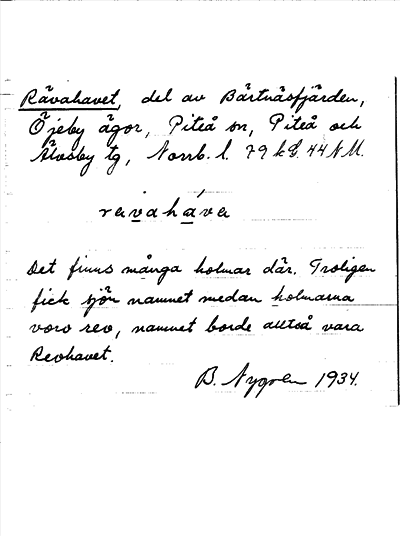 Rävahavet, del av Bärtnäsfjärden,
Öjeby ägor, Piteå sn, Piteå och
Älvsby tg, Norrb. l. 79 k G. 44 N M.
ravahava
Det finns många holmar där. Troligen
fick sjön namnet medan holmarna
voro rev, namnet borde alltså vara
Revhavet.
B. Nygren 1934.